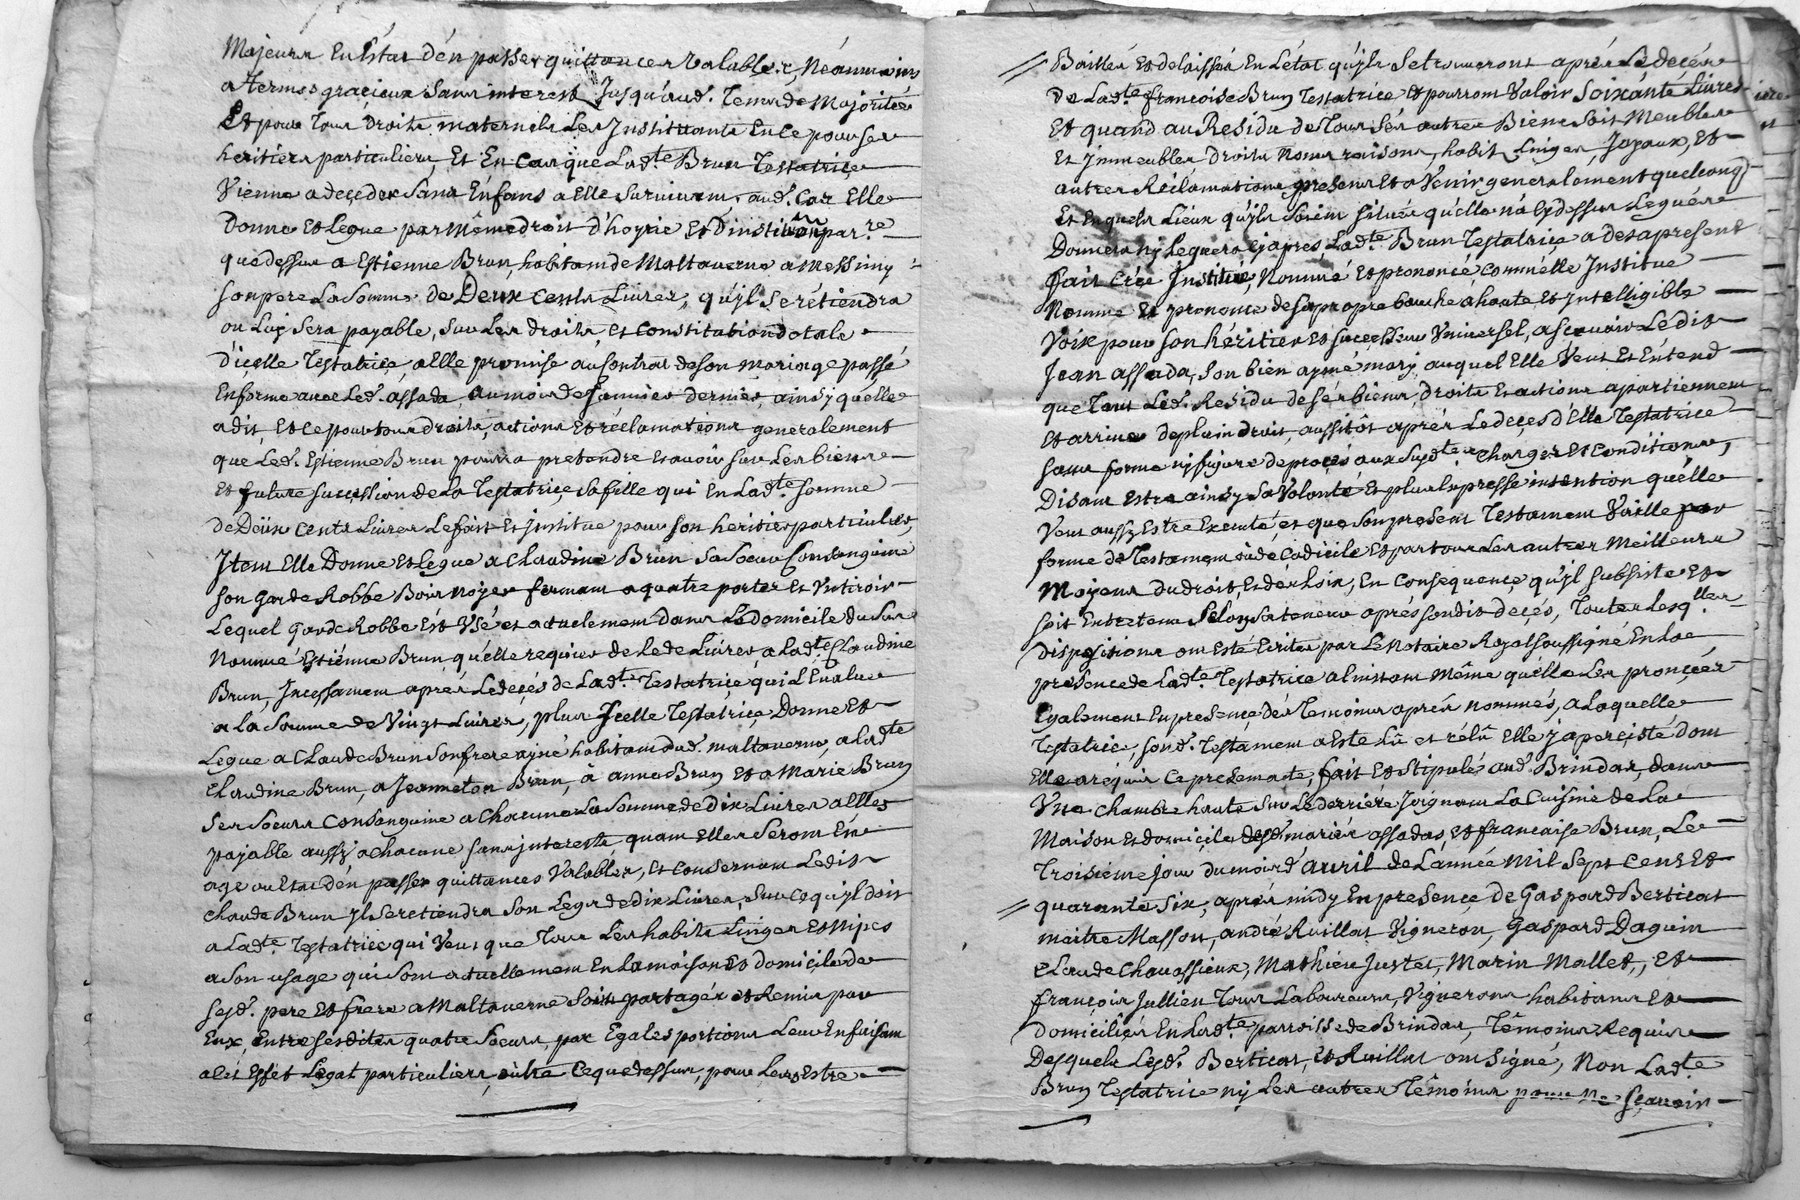 Majeurs En Estat d'en passer quittances Valables, Néanmoins
a Termes gracieux Sans interest Jusqu'aud. Tems de Majorités
Et pour Tous droits maternels Les Instituants En ce pour ses
heritiers particuliers, Et En Cas que Ladte Brun Testatrice
Vienne a deçeder Sans Enfans a Elle Survivans, aud. Cas Elle
Donne Et Legue par Même droit d'hoyrie Et D'institõn par.re
que dessus a Estienne Brun, habitant de Maltaverne a Messimy
son pere La Somme de Deux Cents Livres, qu'yl Se retiendra
ou Luy Sera payable, Sur Les droits, Et Constitution dotale
d'içelle Testatriçe, a Elle promise au Contrat de son mariage passé
En forme avec Led. assada, au mois de Janvier dernier, ainsy qu'elle
a dit, Et ce pour tous droits, actions Et réclamations generalement
que Led. Estienne Brun pourra pretendre Et avoir sur Les biens
Et future succession de La Testatriçe Sa fille qui En Ladte somme
de Deux Cents Livres Le fait Et Institue pour son heritier particulier,
Item Elle Donne Et Legue a Claudine Brun Sa Soeur Consanguine
Son Garde Robbe Bois Noyer fermant a quatre portes Et Un tiroir
Lequel Garde Robbe Est Usé et actuelement dans Le Domicile du Sus
Nommé Estienne Brun, qu'elle requier de Le de Livrer, a Ladte Claudine
Brun, Inçessament après Le deçés de Ladte Testatriçe qui L'Evalue
a La Somme de Vingt Livres, plus Icelle Testatriçe Donne Et
Legue a Claude Brun Son frere ayné habitant dud. maltaverne, a Ladte
Claudine Brun, a Jeanneton Brun, à anne Brun Et a Marie Brun
Ses Soeurs Consanguine a Chacune La Somme de Dix Livres a Elles
payable aussy a Chacune sans interests quant Elles Seront En
age ou Etat d'en passer quittances Valables, Et Consernant Ledit
Claude Brun Yl Se retiendra Son Legs de dix Livres, Sur Ce qu'yl doit
a Ladte Testatriçe qui Veut que Tous Les habits Linges Et Nipes
a Son usage qui Sont actuellement En La maison Et domicile de
sesd. pere Et frere a Maltaverne Soient partagés et Remis par
Eux, Entre ses dites quatre Soeurs, par Egales portions Leur En faisant
a cet Effet Legat particuliers, outre Ce que dessus, pour Leurs Estre
Baillés Et delaissés En L'etat qu'yls Se trouveront après Le deçés
de Ladte françoise Brun Testatrice Et pourront Valoir Soixante Livres
Et quand au Residu de Tous Ses autres Biens Soit Meubles
Et Immeubles droits Noms raisons, habit, Linges, Joyaux, Et
autres Réclamations presens Et a Venir generalement quelconq.
Et En quels Lieux qu'yls Soient situés qu'elle n'a Cy dessus Legués
Donnera ny Leguera Cy après, Ladte Brun Testatrice a des a present
fait Crée Institué, Nommé Et prononcé Comm'elle Institue
Nomme Et prononce de Sa propre bouche a haute Et Intelligible
Voix pour Son héritier Et Successeur Universel, a Scavoir Ledit
Jean assada, Son bien aymé mary auquel Elle Veut Et Entend
que Tout Led. Residu de Ses biens, droits Et actions apartiennent
Et arrive de plain droit, aussitôt après Le deçes d'Elle Testatrice
Sans forme ny figure de proçés aux Susdtes Charges Et Conditions,
Disant Estre ainsy Sa Volonté Et plus Expresse intention qu'elle
Veut aussy Estre Executé, et que Son present Testament Vaille par
forme de Testament ou de Codicile Et par tous Les autres Meilleurs
Moyens du droit, Et des Loix, En Consequence qu'yl subsiste Et
Soit Entretenu Selon Sa teneur après son dit deçés, Toutes Lesq.lles
dispositions ont Esté Ecrites par Le Notaire Royal Soussigné En La
presence de Ladte Testatrice a L'instant Même qu'elle Les prononçées
Egalement En presence des Temoins aprés nommés, a Laquelle
Testatrice, Sond. Testament a Esté Lû et rélû Elle y a perçisté dont
Elle a réquis Ce present acte, fait Et Stipulé aud. Brindas, dans
Une Chambre haute Sur Le derriere Joignant La Cuisine de La
Maison Et domicile desd. mariés assadas, Et françoise Brun, Le
Troisieme jour du mois d'avril de L'année Mil Sept Cent Et
quarante Six, après midy En presence de Gaspard Berticat
maitre Masson, andré Ruillat Vigneron, Gaspard Daguin
Claude Chavassieux, Mathieu Justet, Marin Mallet, Et
françois Jullien Tous Laboureurs, Vignerons habitans Et
Domiciliés En Ladte parroisse de Brindas, Têmoins Requis
Desquels Lesd. Berticat, et Ruillat ont Signé, Non Ladte
Brun Testatrice ny Les autres Têmoins pour ne Sçavoir